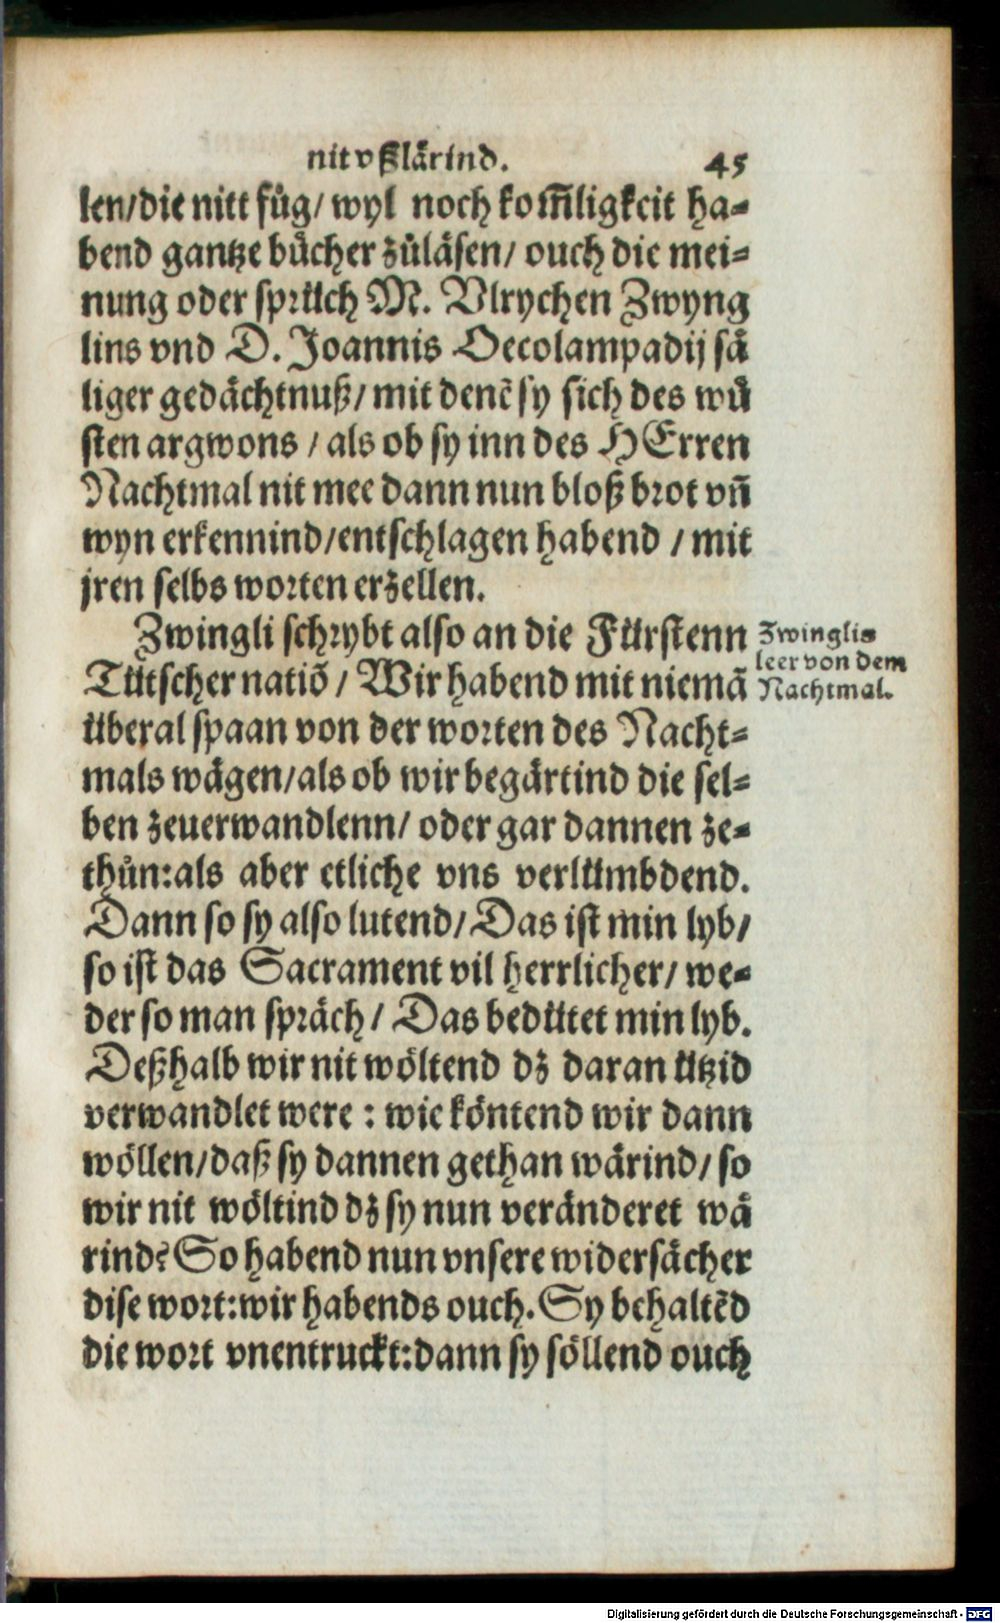 nit vßlärind. 45
len/die nitt füg/ wyl noch kom̃ligkeit ha⸗
bend gantze bücher zůläsen/ ouch die mei⸗
nung oder sprüch M. Vlrychen Zwyng
lins vnd D. Joannis Oecolampadij sä
liger gedächtnuß/ mit denẽ sy sich des wů
sten argwons / als ob sy inn des HErren
Nachtmal nit mee dann nun bloß brot vñ
wyn erkennind/entschlagen habend / mit
jren selbs worten erzellen.
Zwingli schrybt also an die Fürstenn
Tütscher natiõ / Wir habend mit niemã
überal spaan von der worten des Nacht⸗
mals wägen/als ob wir begärtind die sel⸗
ben zeuerwandlenn/ oder gar dannen ze⸗
thůn:als aber etliche vns verlümbdend.
Dann so sy also lutend/ Das ist min lyb/
so ist das Sacrament vil herrlicher/ we⸗
der so man spräch/ Das bedütet min lyb.
Deßhalb wir nit wöltend dz daran ützid
verwandlet were : wie köntend wir dann
wöllen/daß sy dannen gethan wärind/ so
wir nit wöltind dz sy nun veränderet wä
rind? So habend nun vnsere widersächer
dise wort:wir habends ouch. Sy behaltẽd
die wort vnentruckt:dann sy söllend ouch
Zwinglis
leer von dem
Nachtmal.
Digitalisierung gefördert durch die Deutsche Forschungsgemeinschaft - DFG